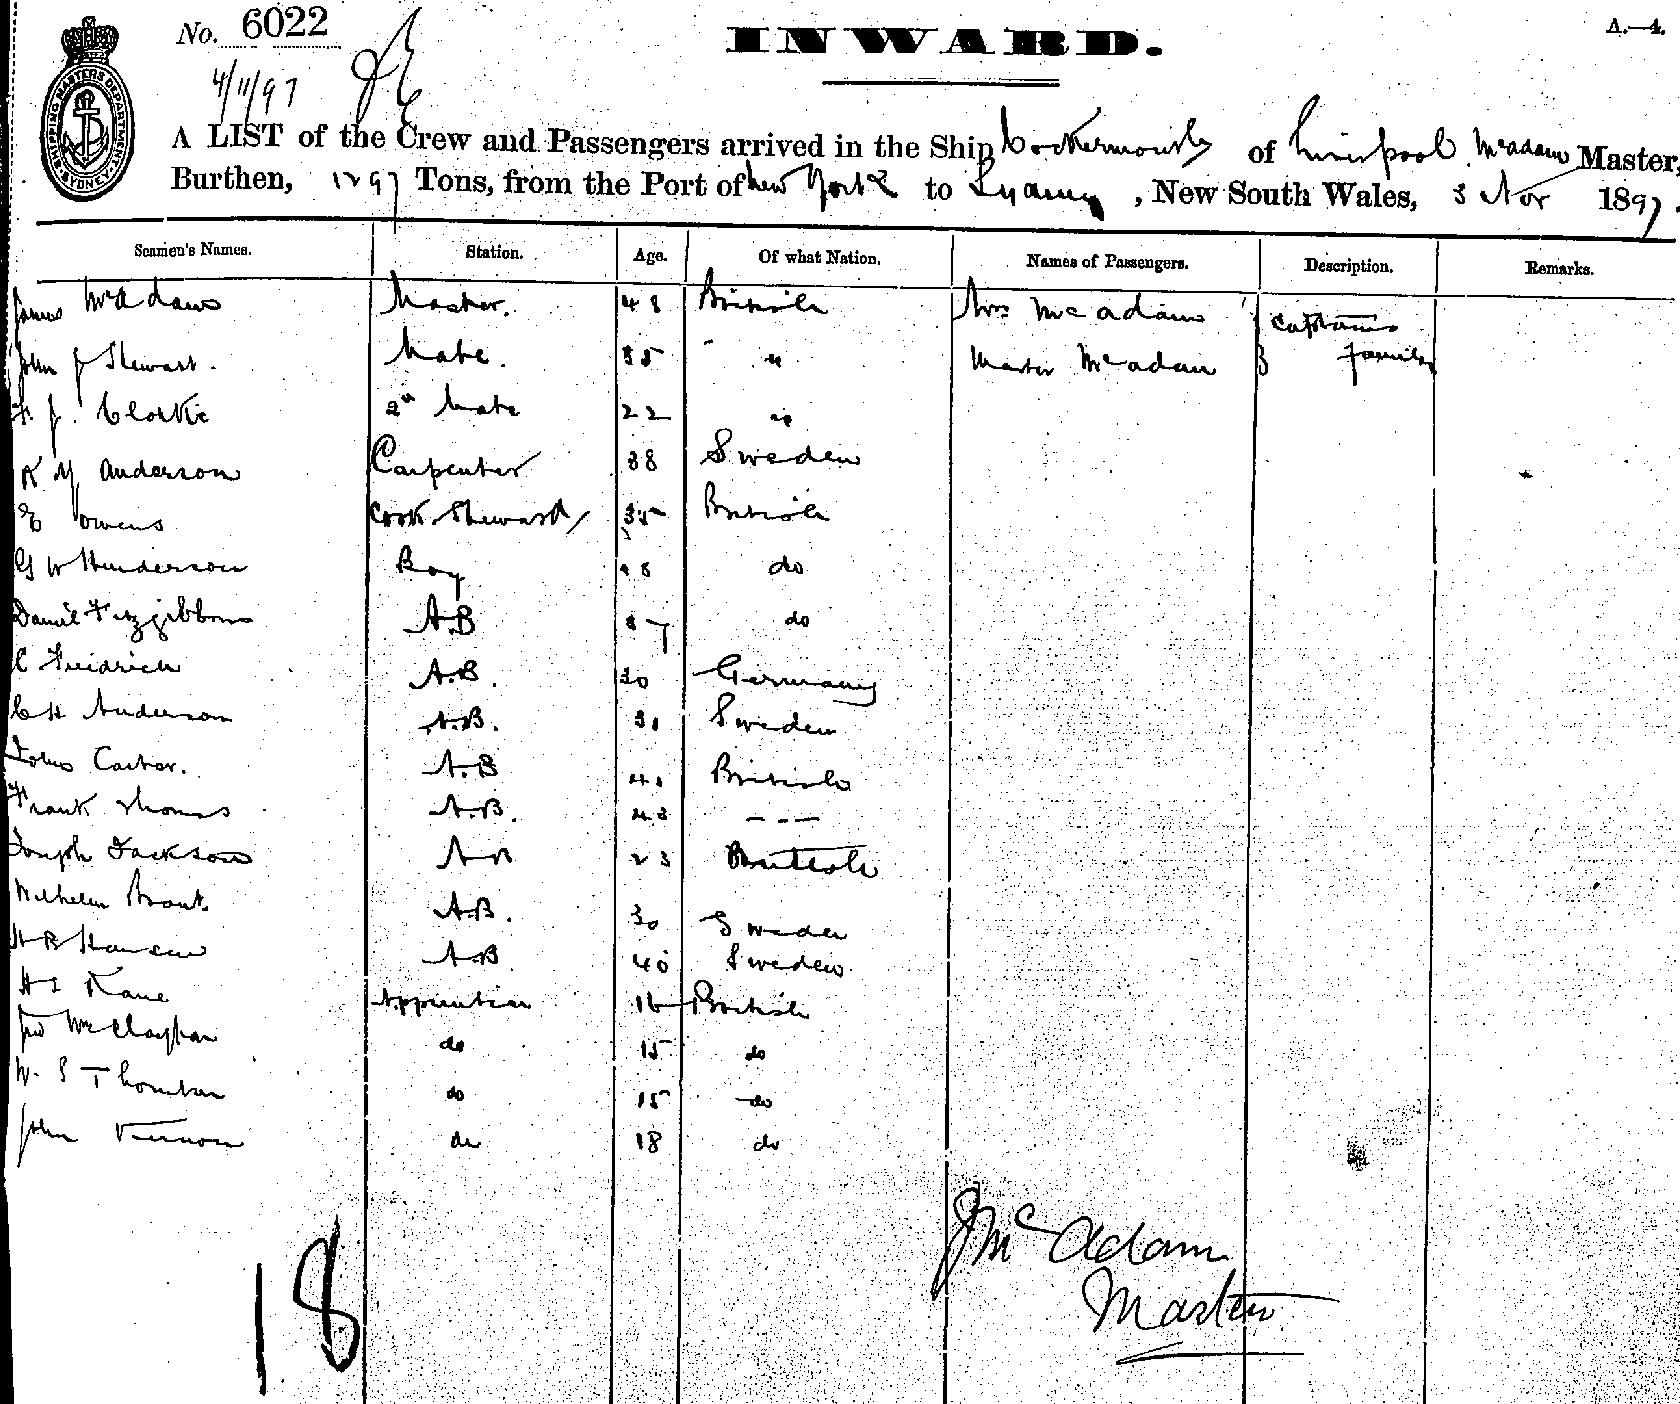 No. 6022
INWARD.
A.—4.
SHIPPING MASTERS DEPARTMENT SYDNEY
4/11/97
A LIST of the Crew and Passengers arrived in the Ship Cockermouth of Liverpool McAdam Master,
Burthen, 1297 Tons, from the Port of New York to Sydney, New South Wales, 3 Nov 1897.
Seamen's Names. Station. Age. Of what Nation. Names of Passengers. Description. Remarks.
James McAdam Master. 48 British Mrs McAdam Captains
John J Stewart. Mate. 35 " Master McAdam family
F. J. Clarke 2nd Mate 22 "
K M Anderson Carpenter 38 Sweden
E Owens Cook Steward 35 British
G W Henderson Boy 18 do
Daniel Fitzgibbon A.B do
C Freidrich A.B. 30 Germany
C H Anderson A.B. 31 Sweden
John Carter. A.B 41 British
Frank Thomas A.B. 43 - - -
Joseph Jackson AB 23 British
Wilhelm A.B. 30 Sweden
H B Hansen A.B 40 Sweden
H S Kane Apprentice 16 British
McClaghan do 15 do
W. S do 15 do
John Vernon do 18 do
18
J McAdam
Master